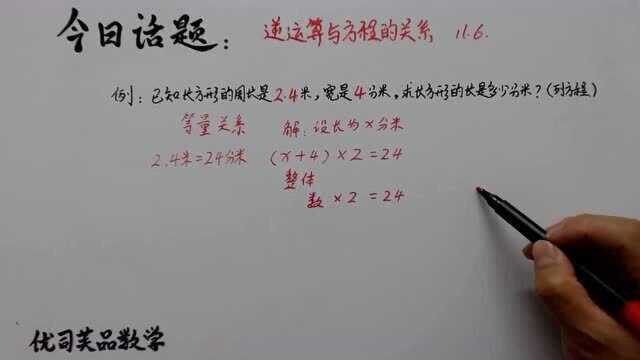 今日话题： 逆运算与方程的关系 11.6.
例：已知长方形的周长是2.4米，宽是4分米，求长方形的长是多少分米？(列方程)
等量关系 解：设长为x分米
2.4米=24分米 (x+4)×2=24
整体
数×2=24
优司芙品数学